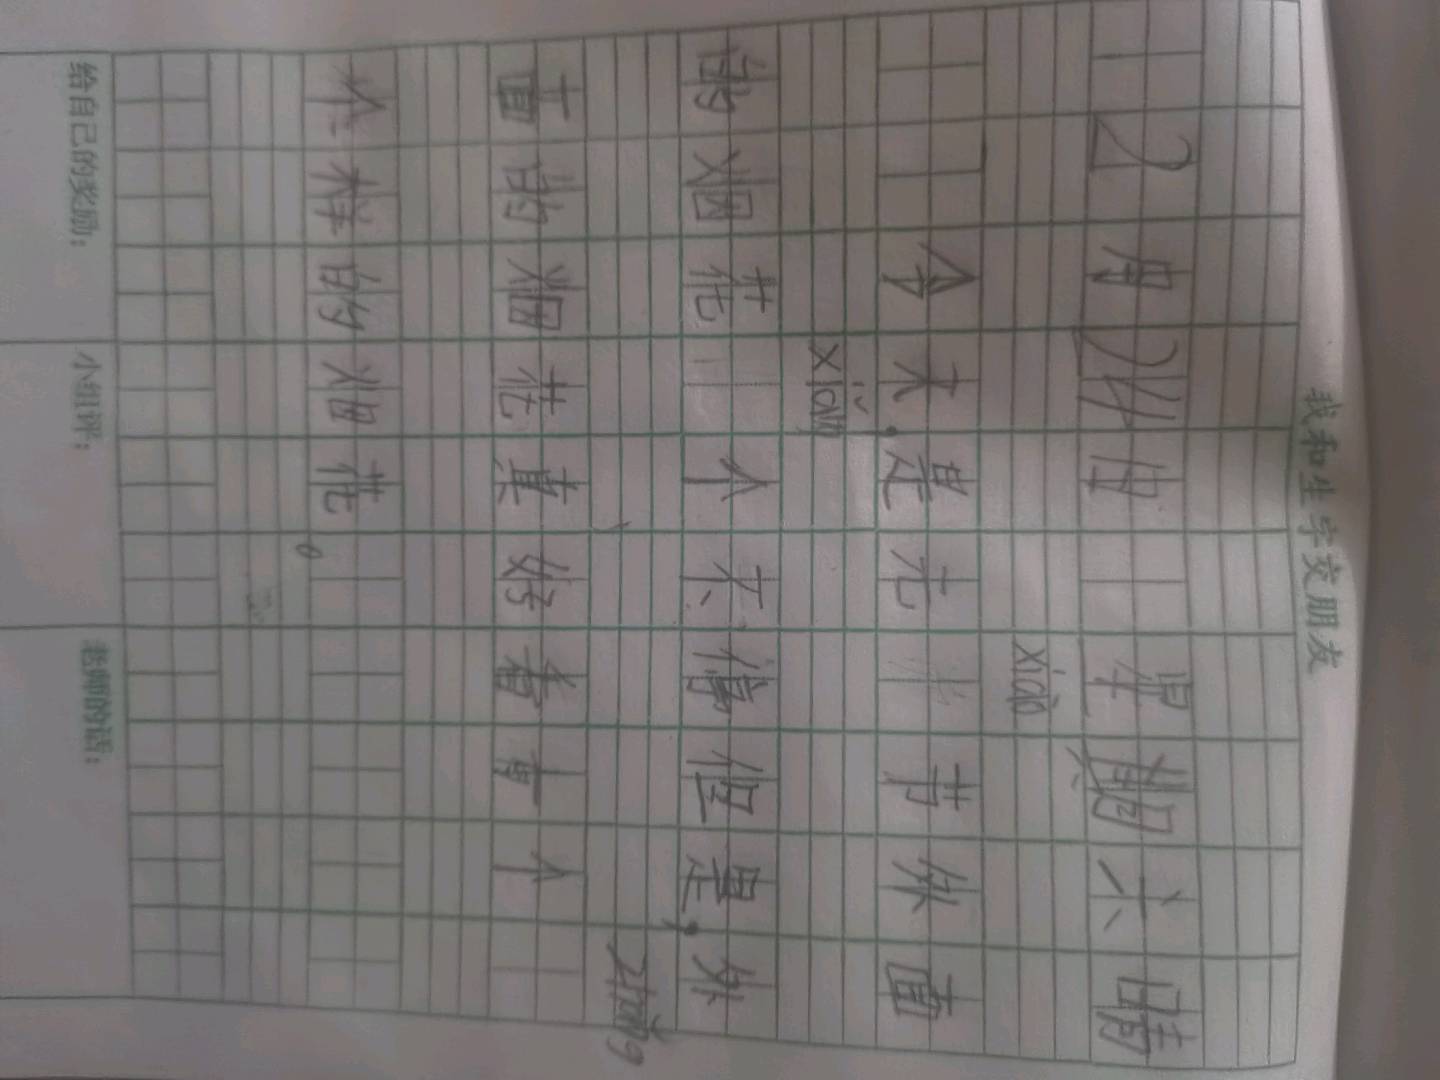 我和生字交朋友
2月24日 星期六 晴
xiāo
今天,是元 节外面
xiǎng
的烟花 个不停,但是,外
zhǎng
面的烟花真好看 个
样的烟花。
给自己的奖励: 小组评: 老师的话: